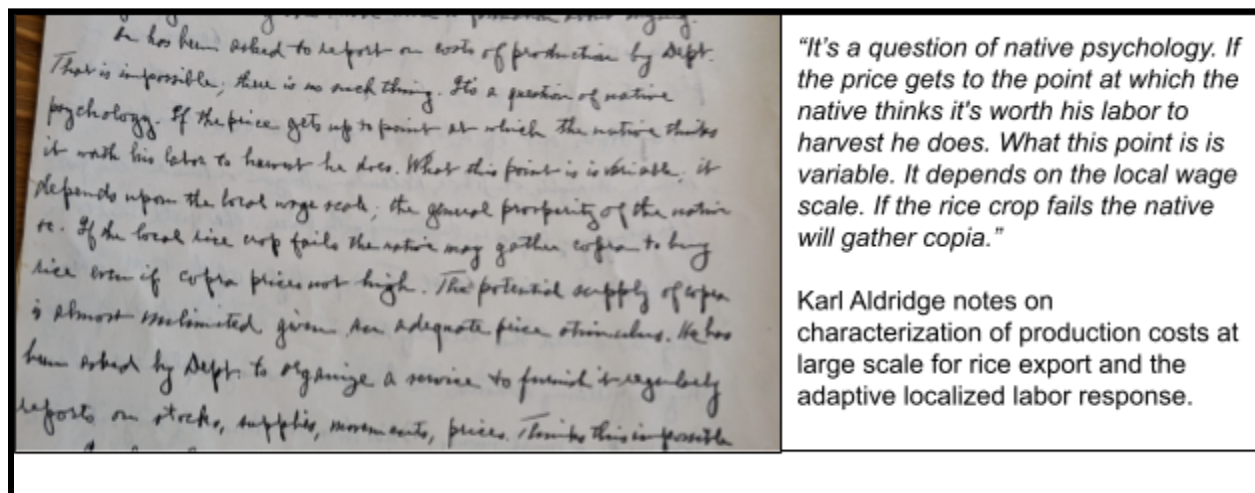 He has been asked to report on costs of production by Dept.
That is impossible, there is no such thing. It's a question of native
psychology. If the price gets up to point at which the native thinks
it worth his labor to harvest he does. What this point is is variable, it
depends upon the local wage scale, the general prosperity of the native
etc. If the local rice crop fails the native may gather copra to buy
rice even if copra prices not high. The potential supply of copra
is almost unlimited given an adequate price stimulus. He has
been asked by Dept. to organize a service to furnish it regularly
reports on stocks, supplies, movements, prices. Thinks this impossible
“It’s a question of native psychology. If
the price gets to the point at which the
native thinks it's worth his labor to
harvest he does. What this point is is
variable. It depends on the local wage
scale. If the rice crop fails the native
will gather copia.”
Karl Aldridge notes on
characterization of production costs at
large scale for rice export and the
adaptive localized labor response.